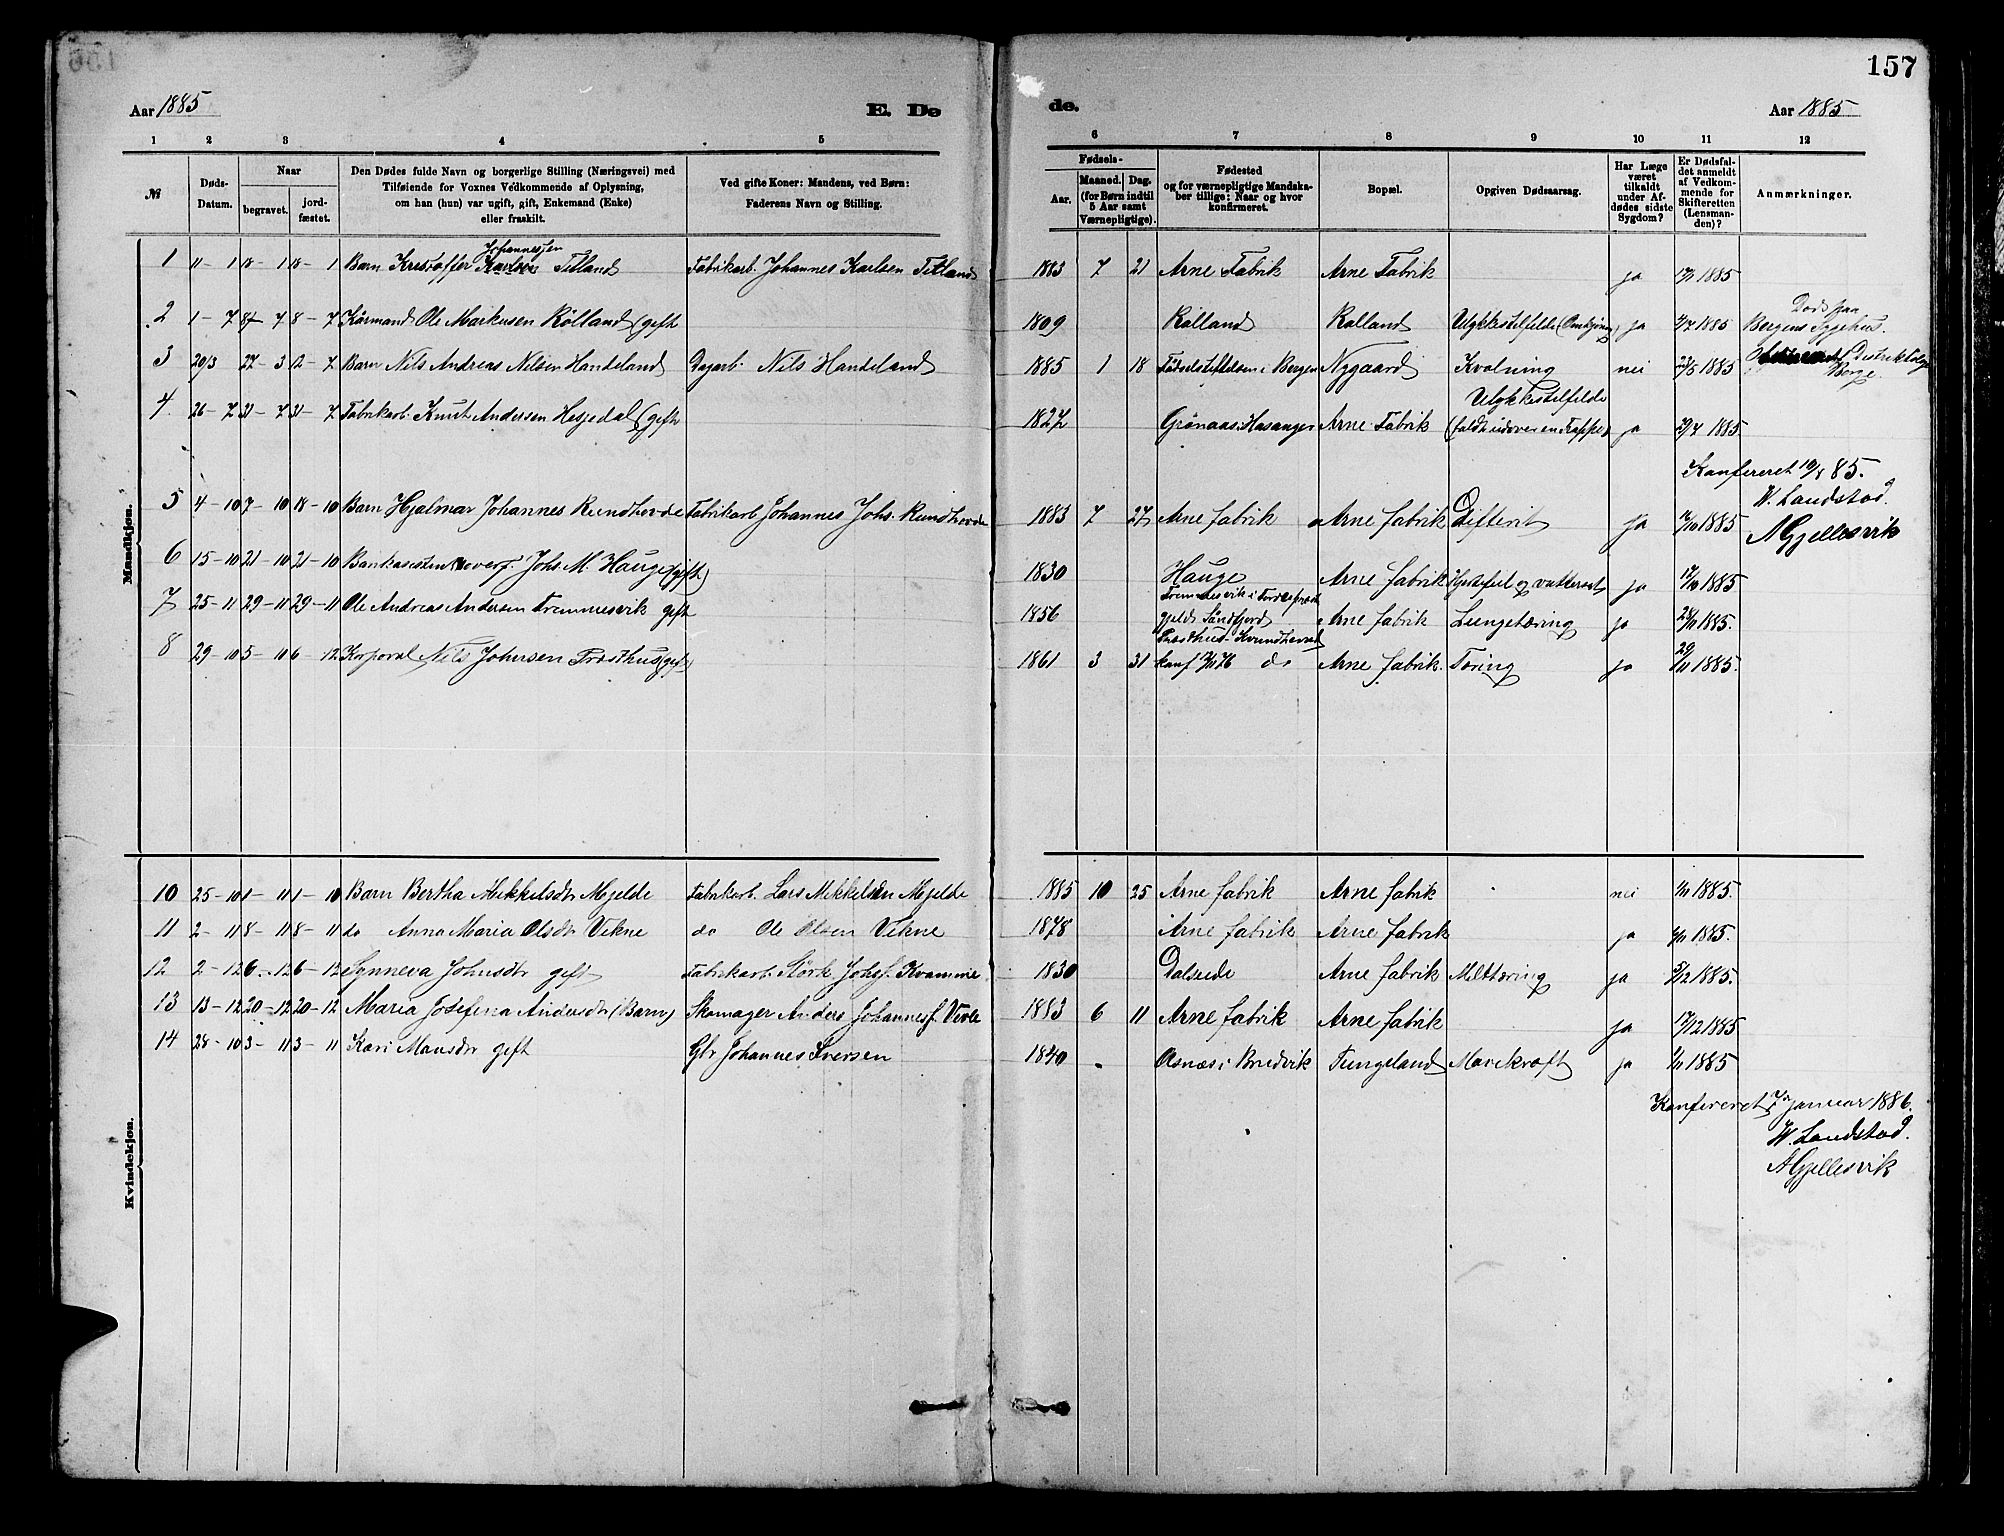 157
Aar 1885 E. Dø
de. Aar 1885
1 2 3 4 5
6 7 8 9 10 11 12
№
Døds-
Datum.
Naar
begravet.
jord-
fæstet.
Den Dødes fulde Navn og borgerlige Stilling (Næringsvei) med
Tilføiende for Voxnes Vedkommende af Oplysning,
om han (hun) var ugift, gift, Enkemand (Enke)
eller fraskilt.
Ved gifte Koner: Mandens, ved Børn:
Faderens Navn og Stilling.
Fødsels-
Aar.
Maaned. Dag.
(for Børn indtil
5 Aar samt
Værnepligtige).
Fødested
og for værnepligtige Mandska-
ber tillige: Naar og hvor
konfirmeret.
Bopæl.
Opgiven Dødsaarsag.
Har Læge
været
tilkaldt
under Af-
dødes sidste
Sygdom?
Er Dødsfal-
det anmeldt
af Vedkom-
mende for
Skifteretten
(Lensman-
den)?
Anmærkninger.
Mandkjøn.
Johannessen
1 11-1 18-1 18-1 Barn Kristoffer Karlsen Titland Fabrikarb. Johannes Karlsen Titland 1883 7 21 Arne Fabrik Arne Fabrik ja 1885
Død paa
2 1-7 8-7 8-7 Kårmand Ole Markusen Kolland (gift 1809 Kolland Kolland Ulykkestilfelde ja 2/7 1885 Bergens Sygehus.
3 20/3 27-3 12-7 Barn Nils Andreas Nilsen Handeland Dagarb. Nils Handeland 1885 1 18 Fødselstiftelsen i Bergen Nygaard Kvolning nei 1885 Borge.
Ulykkestilfelde
4 26-7 31-7 31-7 Fabrikarb. Knut Andersen Hesjedal (gift 1827 Grønaas Hosanger Arne Fabrik (faldt udover en Trappe) ja 29/7 1885.
Konfereret 19/8 85.
W. Landstad.
5 4-10 7-10 18-10 Barn Hjalmar Johannes Rundhovde Fabrikarb Johannes Johs. Rundhovde 1883 7 27 Arne fabrik Arne fabrik Difterit ja 1885
A Gjellesvik
6 15-10 21-10 21-10 Johs M. Hauge (gift) 1830 Hauge Arne fabrik Hjertefeil og vattersot ja 17/10 1885
7 25-11 29-11 29-11 Ole Andreas Andersen Tremmesvik gift 1856 Søndfjord Arne fabrik Lungetæring ja 28/11 1885.
8 29-10 5-10 6-12 Korporal Nils Johnsen Træsthus (gift) 1861 3 31 konf do Arne fabrik. Tæring ja 29/11 1885.
Kvindekjøn.
10 25-10 1-11 1-10 Barn Bertha Mikkelsdtr Mjelde Fabrikarb. Lars Mikkelsen Mjelde 1885 10 25 Arne fabrik Arne fabrik nei 1885.
11 2-11 8-11 8-11 do Anna Maria Olsdtr Vikne do Ole Olsen Vikne 1878 Arne fabrik Arne fabrik ja 1885.
12 2-12 6-12 6-12 Synneva Johnsdtr gift Fabrikarb. Størk Johs. Kvamme 1830 Dalseide Arne fabrik Milttæring ja 5/12 1885.
13 13-12 20-12 20-12 Maria Josefina Andersdtr (Barn) Skomager Anders Johannes. Vevle 1883 6 11 Arne fabrik Arne fabrik ja 17/12 1885
14 28-10 3-11 3-11 Kari Monsdtr gift Gbr Johannes Iversen 1840 Osnæs i Bruvik Tungeland Mavekræft ja 1/11 1885
Konfereret januar 1886.
W. Landstad.
A Gjellesvik